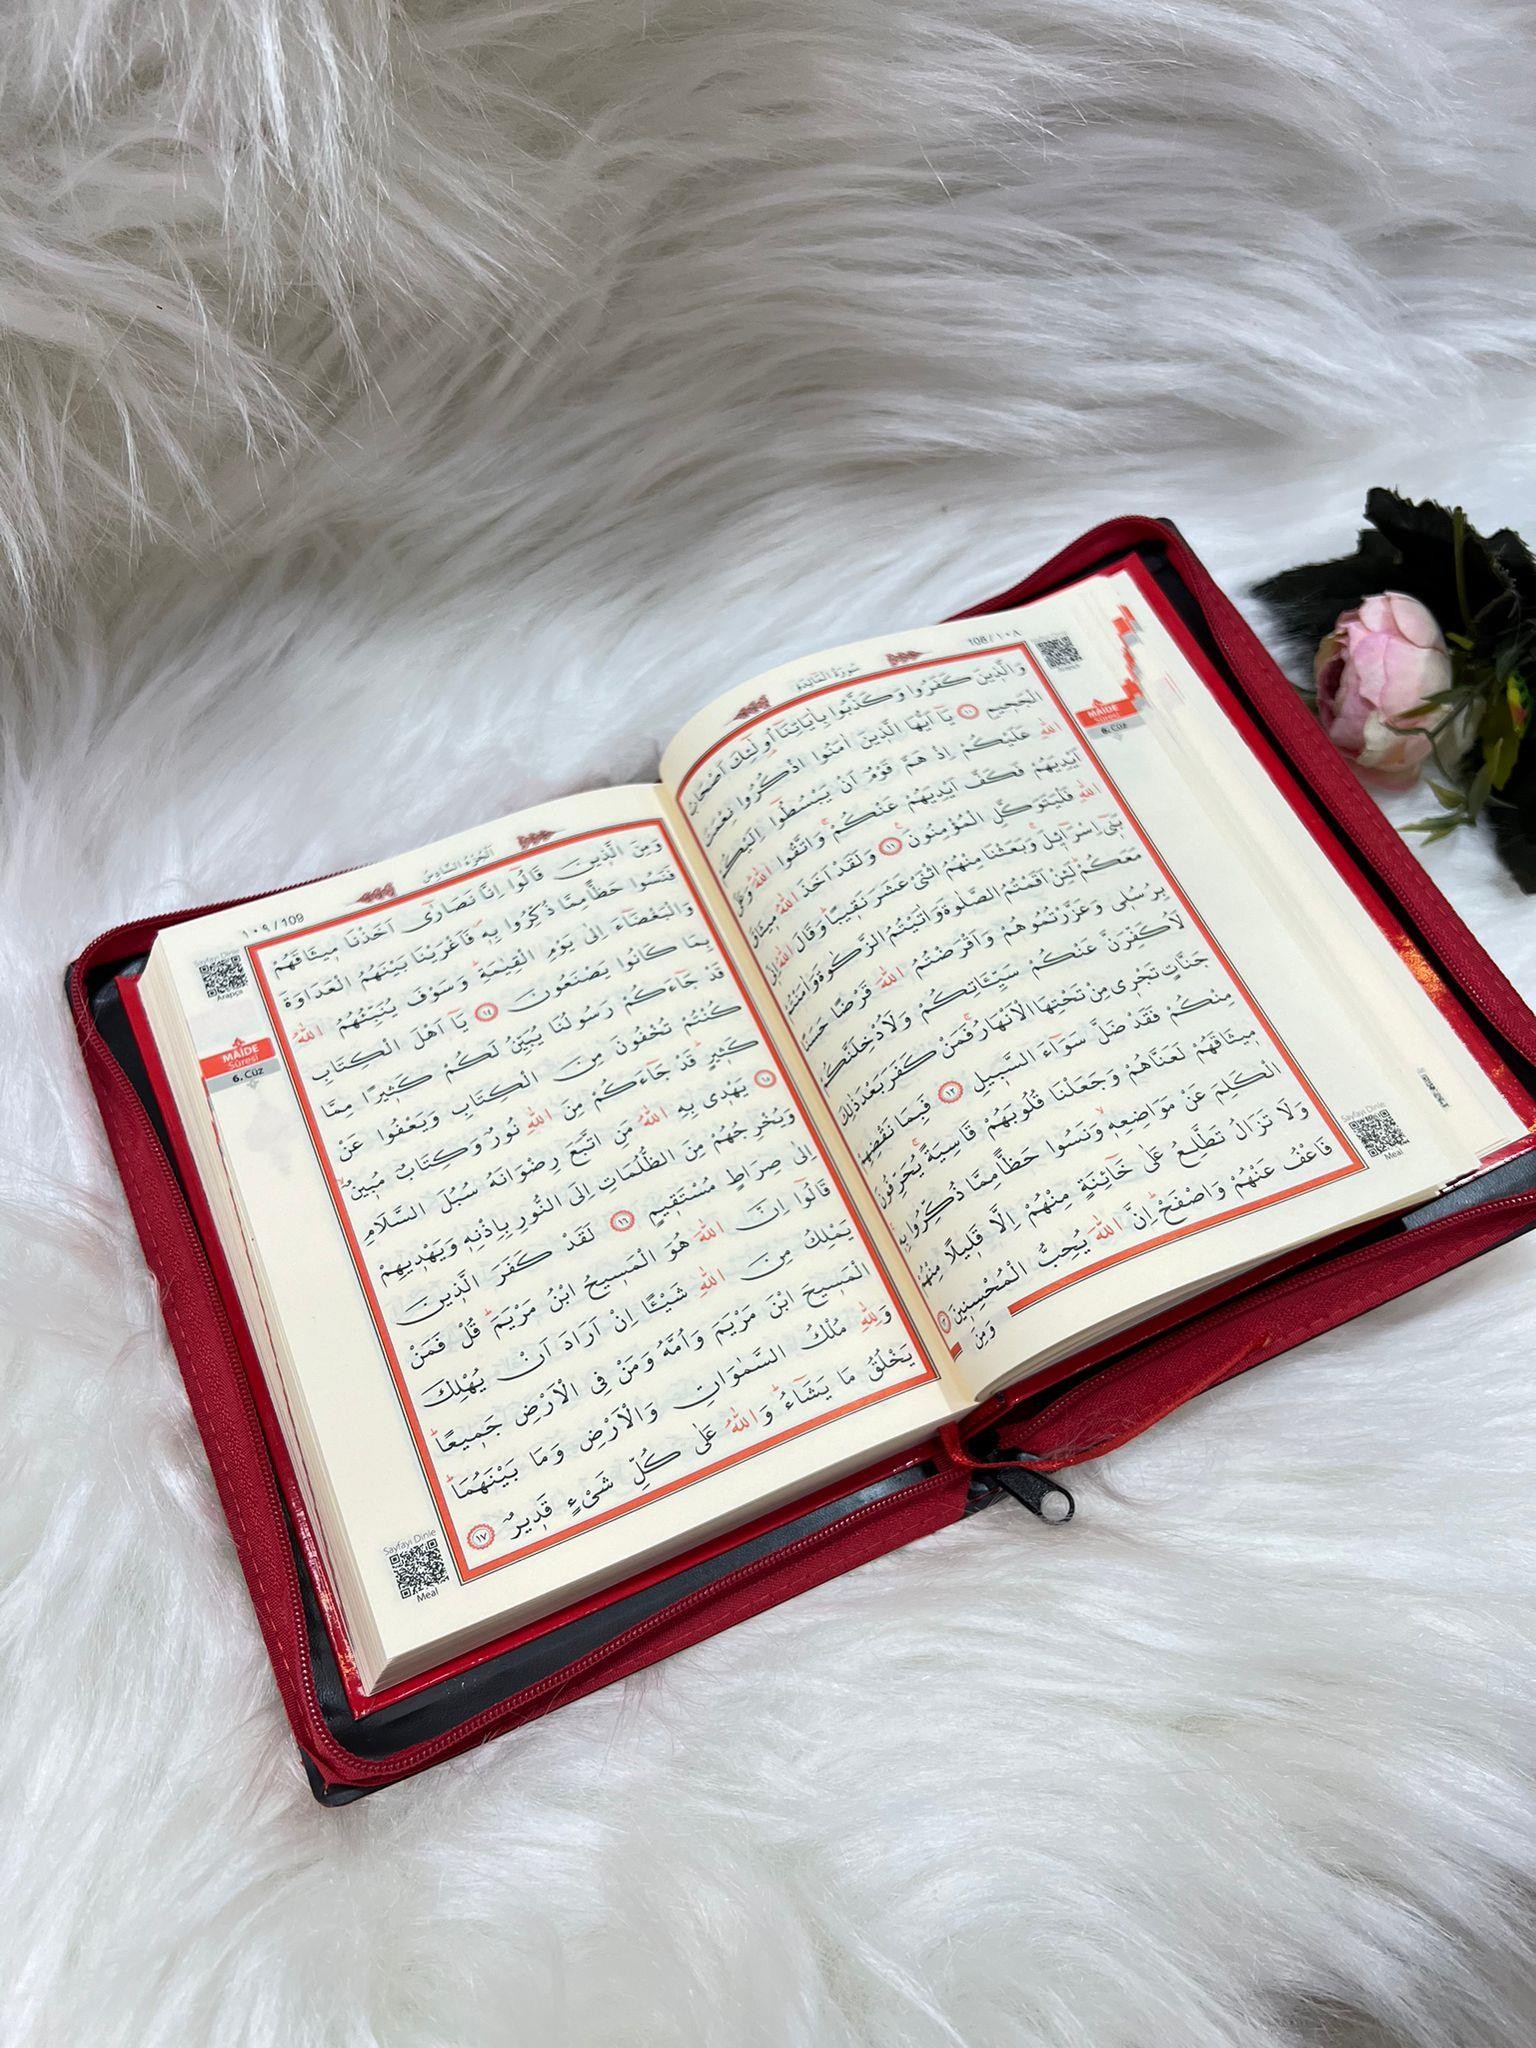 108 / ١٠٨
سُورَةُ الْمَائِدَةِ
وَالَّذِينَ كَفَرُوا وَكَذَّبُوا بِاٰيَاتِنَا اُو۬لٰٓئِكَ اَصْحَابُ
الْجَح۪يمِ ١٠ يَٓا اَيُّهَا الَّذ۪ينَ اٰمَنُوا اذْكُرُوا نِعْمَتَ
اللّٰهِ عَلَيْكُمْ اِذْ هَمَّ قَوْمٌ اَنْ يَبْسُطُٓوا اِلَيْكُمْ
اَيْدِيَهُمْ فَكَفَّ اَيْدِيَهُمْ عَنْكُمْۚ وَاتَّقُوا اللّٰهَۜ وَعَلَى
اللّٰهِ فَلْيَتَوَكَّلِ الْمُؤْمِنُونَ۟ ١١ وَلَقَدْ اَخَذَ اللّٰهُ م۪يثَاقَ
بَن۪ٓي اِسْرَٓائ۪لَۚ وَبَعَثْنَا مِنْهُمُ اثْنَيْ عَشَرَ نَق۪يبًاۜ وَقَالَ اللّٰهُ اِنّ۪ي
مَعَكُمْۜ لَئِنْ اَقَمْتُمُ الصَّلٰوةَ وَاٰتَيْتُمُ الزَّكٰوةَ وَاٰمَنْتُمْ
بِرُسُل۪ي وَعَزَّرْتُمُوهُمْ وَاَقْرَضْتُمُ اللّٰهَ قَرْضًا حَسَنًا
لَاُكَفِّرَنَّ عَنْكُمْ سَيِّـَٔاتِكُمْ وَلَاُدْخِلَنَّكُمْ
جَنَّاتٍ تَجْر۪ي مِنْ تَحْتِهَا الْاَنْهَارُۚ فَمَنْ كَفَرَ بَعْدَ ذٰلِكَ
مِنْكُمْ فَقَدْ ضَلَّ سَوَٓاءَ السَّب۪يلِ ١٢ فَبِمَا نَقْضِهِمْ
م۪يثَاقَهُمْ لَعَنَّاهُمْ وَجَعَلْنَا قُلُوبَهُمْ قَاسِيَةًۚ يُحَرِّفُونَ
الْكَلِمَ عَنْ مَوَاضِعِه۪ۙ وَنَسُوا حَظًّا مِمَّا ذُكِّرُوا بِه۪ۚ
وَلَا تَزَالُ تَطَّلِعُ عَلٰى خَٓائِنَةٍ مِنْهُمْ اِلَّا قَل۪يلًا مِنْهُمْ
فَاعْفُ عَنْهُمْ وَاصْفَحْۜ اِنَّ اللّٰهَ يُحِبُّ الْمُحْسِن۪ينَ
وَمِنَ
MÂİDE
Sûresi
6. Cüz
Sayfayı Dinle
Meal
١٠٩ / 109
اَلْجُزْءُ السَّادِسُ
وَمِنَ الَّذ۪ينَ قَالُٓوا اِنَّا نَصَارٰٓى اَخَذْنَا م۪يثَاقَهُمْ
فَنَسُوا حَظًّا مِمَّا ذُكِّرُوا بِه۪ۖ فَاَغْرَيْنَا بَيْنَهُمُ الْعَدَاوَةَ
وَالْبَغْضَٓاءَ اِلٰى يَوْمِ الْقِيٰمَةِۜ وَسَوْفَ يُنَبِّئُهُمُ اللّٰهُ
بِمَا كَانُوا يَصْنَعُونَ ١٤ يَٓا اَهْلَ الْكِتَابِ
قَدْ جَٓاءَكُمْ رَسُولُنَا يُبَيِّنُ لَكُمْ كَث۪يرًا مِمَّا
كُنْتُمْ تُخْفُونَ مِنَ الْكِتَابِ وَيَعْفُوا عَنْ
كَث۪يرٍۜ قَدْ جَٓاءَكُمْ مِنَ اللّٰهِ نُورٌ وَكِتَابٌ مُب۪ينٌۙ
١٥ يَهْد۪ي بِهِ اللّٰهُ مَنِ اتَّبَعَ رِضْوَانَهُ سُبُلَ السَّلَامِ
وَيُخْرِجُهُمْ مِنَ الظُّلُمَاتِ اِلَى النُّورِ بِاِذْنِه۪ وَيَهْد۪يهِمْ
اِلٰى صِرَاطٍ مُسْتَق۪يمٍ ١٦ لَقَدْ كَفَرَ الَّذ۪ينَ
قَالُٓوا اِنَّ اللّٰهَ هُوَ الْمَس۪يحُ ابْنُ مَرْيَمَۜ قُلْ فَمَنْ
يَمْلِكُ مِنَ اللّٰهِ شَيْـًٔا اِنْ اَرَادَ اَنْ يُهْلِكَ
الْمَس۪يحَ ابْنَ مَرْيَمَ وَاُمَّهُ وَمَنْ فِي الْاَرْضِ جَم۪يعًاۜ
وَلِلّٰهِ مُلْكُ السَّمٰوَاتِ وَالْاَرْضِ وَمَا بَيْنَهُمَاۜ
يَخْلُقُ مَا يَشَٓاءُۜ وَاللّٰهُ عَلٰى كُلِّ شَيْءٍ قَد۪يرٌ ١٧
Sayfayı Dinle
Arapça
MÂİDE
Sûresi
6. Cüz
Sayfayı Dinle
Meal